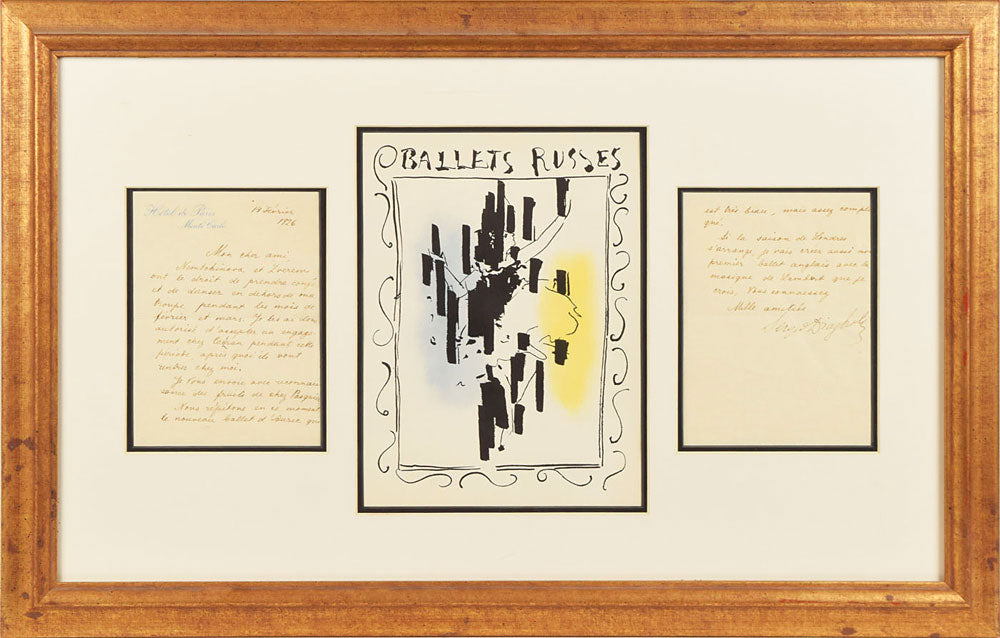 Hôtel de Paris
Monte Carlo
14 Février
1926
Mon cher ami
Nemtchinova et Dverine
ont le droit de prendre congé
et de danser en dehors de ma
troupe pendant les mois de
février et mars. Je les ai donc
autorisé d'accepter un engage
ment chez pendant cette
période après quoi ils vont
rentrer chez moi.
Je vous envoie avec reconnais
sance des fruits de chez Pasquier
Nous répétons en ce moment
le nouveau ballet d'Auric qui
BALLETS RUSSES
est très beau, mais assez compli
qué.
Si la saison de Londres
s'arrange je vais créer aussi un
premier ballet anglais avec la
musique de Lambert que je
crois vous connaissez
Mille amitiés
Serge Diaghilev